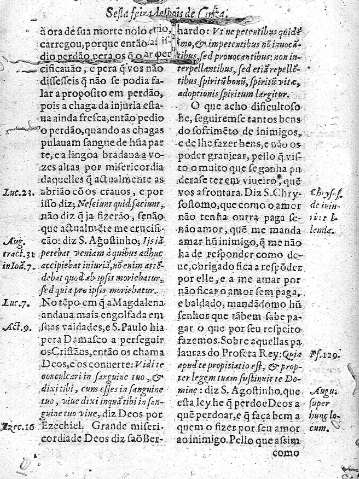 Sesta feira despois de Cinza.
à ora de sua morte nolo
carregou, porque então
dio perdão pera os q̃ o
cificauão, e pera q̃ vos não
dissesseis q̃ não se podia fa-
lar a proposito em perdão,
pois a chaga da injuria esta-
ua ainda fresca, então pedio
o perdão, quando as chagas
pulauam sangue de hũa par-
te, e a lingoa bradaua a vo-
zes altas por misericordia
daquelles q̃ actualmente as
abrião cõ os crauos, e por
isso diz, Nesciunt quid faciunt,
não diz q̃ ja fizerão, senão
que actualmẽte me crucifi-
cão: diz S. Agostinho, Ipsis
petebat veniam à quibus adhuc
accipiebat iniuriã, nõ enim attẽ-
debat quod ab ipsis moriebatur,
sed quia pro ipsis moriebatur.
No tẽpo em q̃ a Magdalena
andaua mais engolfada em
suas vaidades, e S. Paulo hia
pera Damasco a perseguir
os Cristãos, então os chama
Deos, e os conuerte: Vidi te
conculcari in sanguine tuo, &
dixi tibi, cum esses in sanguine
tuo, viue dixi inquã tibi in san-
guine tuo viue, diz Deos por
Ezechiel. Grande miseri-
cordia de Deos diz saõ Ber-
Luc.23.
Aug.
tract.31
in Ioã.7.
Luc.7.
Act.9.
Ezec.16
nardo: Vt ne petentibus quidẽ
&impetentibus nõ inuocã-
tibus, sed prouocantibus: non in-
terpellantibus, sed etiã repellẽ-
tibus spiritũ bonũ, spiritũ vitæ,
adoptionis spiritum largitur.
O que acho difficultoso
he, seguiremse tantos bens
do sofrimẽto de inimigos,
e de lhe fazer bens, e não os
poder granjear, pello q̃ vis-
to o muito que se ganha pu-
dera se ter em viueiro, quẽ
vos afrontara. Diz S. Chry-
sostomo, que como o amor
não tenha outra paga se-
não amor, quẽ me manda
amar hũ inimigo, q̃ me não
ha de responder como de-
ue, obrigado fica a respõder
por elle, e a me amar por
não ficar amor sem paga,
e baldado, mandãdomo hũ
senhor que tãbem sabe pa-
gar o que por seu respeito
fazemos. Sobre aquellas pa-
lauras do Profeta Rey: Quia
apud te propitiatio est, & prop-
ter legem tuam sustinui te Do-
mine: diz S. Agostinho, que
esta ley he q̃ perdoe Deos a
quẽ perdoar, e q̃ faça bem a
quem o fizer por seu amor
ao inimigo. Pello que assim
como
Chrys.
de ini-
Ps.129.
Augus.
super
hunc lo-
cum.